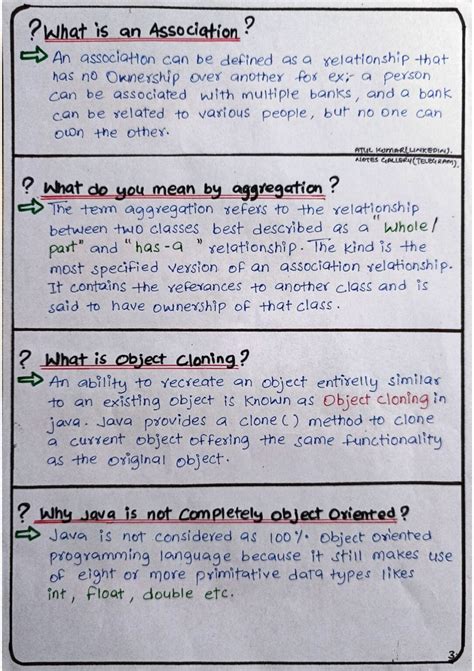 ? What is an Association ?
⇒ An association can be defined as a relationship that
has no Ownership over another for ex;- a person
can be associated with multiple banks, and a bank
can be related to various people, but no one can
own the other.
ATUL KUMAR(LINKEDIN).
NOTES GALLERY(TELEGRAM).
? What do you mean by aggregation ?
⇒ The term aggregation refers to the relationship
between two classes best described as a "whole/
part" and "has-a" relationship. The kind is the
most specified version of an association relationship.
It contains the referances to another class and is
said to have ownership of that class.
? What is Object Cloning ?
⇒ An ability to recreate an object entirelly similar
to an existing object is known as Object Cloning in
java. Java provides a clone() method to clone
a current object offering the same functionality
as the original object.
? Why Java is not Completely Object Oriented ?
⇒ Java is not considered as 100% Object oriented
programming language because it still makes use
of eight or more primitative data types likes
int, float, double etc.
3